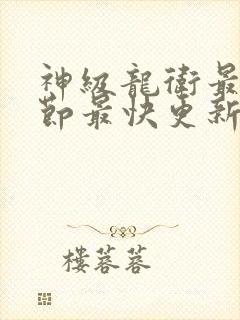 神级龍衛最
節最快更新
樓蓉蓉